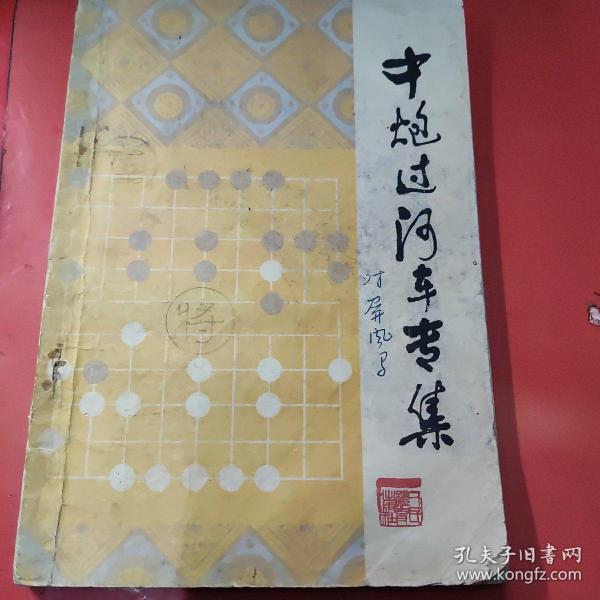 中炮过河车专集
对屏风马
将
孔夫子旧书网
www.kongfz.com